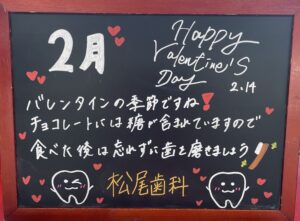 2月
Happy
Valentine's
Day
2.14
バレンタインの季節ですね❗
チョコレートには糖が含まれていますので
食べた後は忘れずに歯を磨きましょう
松尾歯科